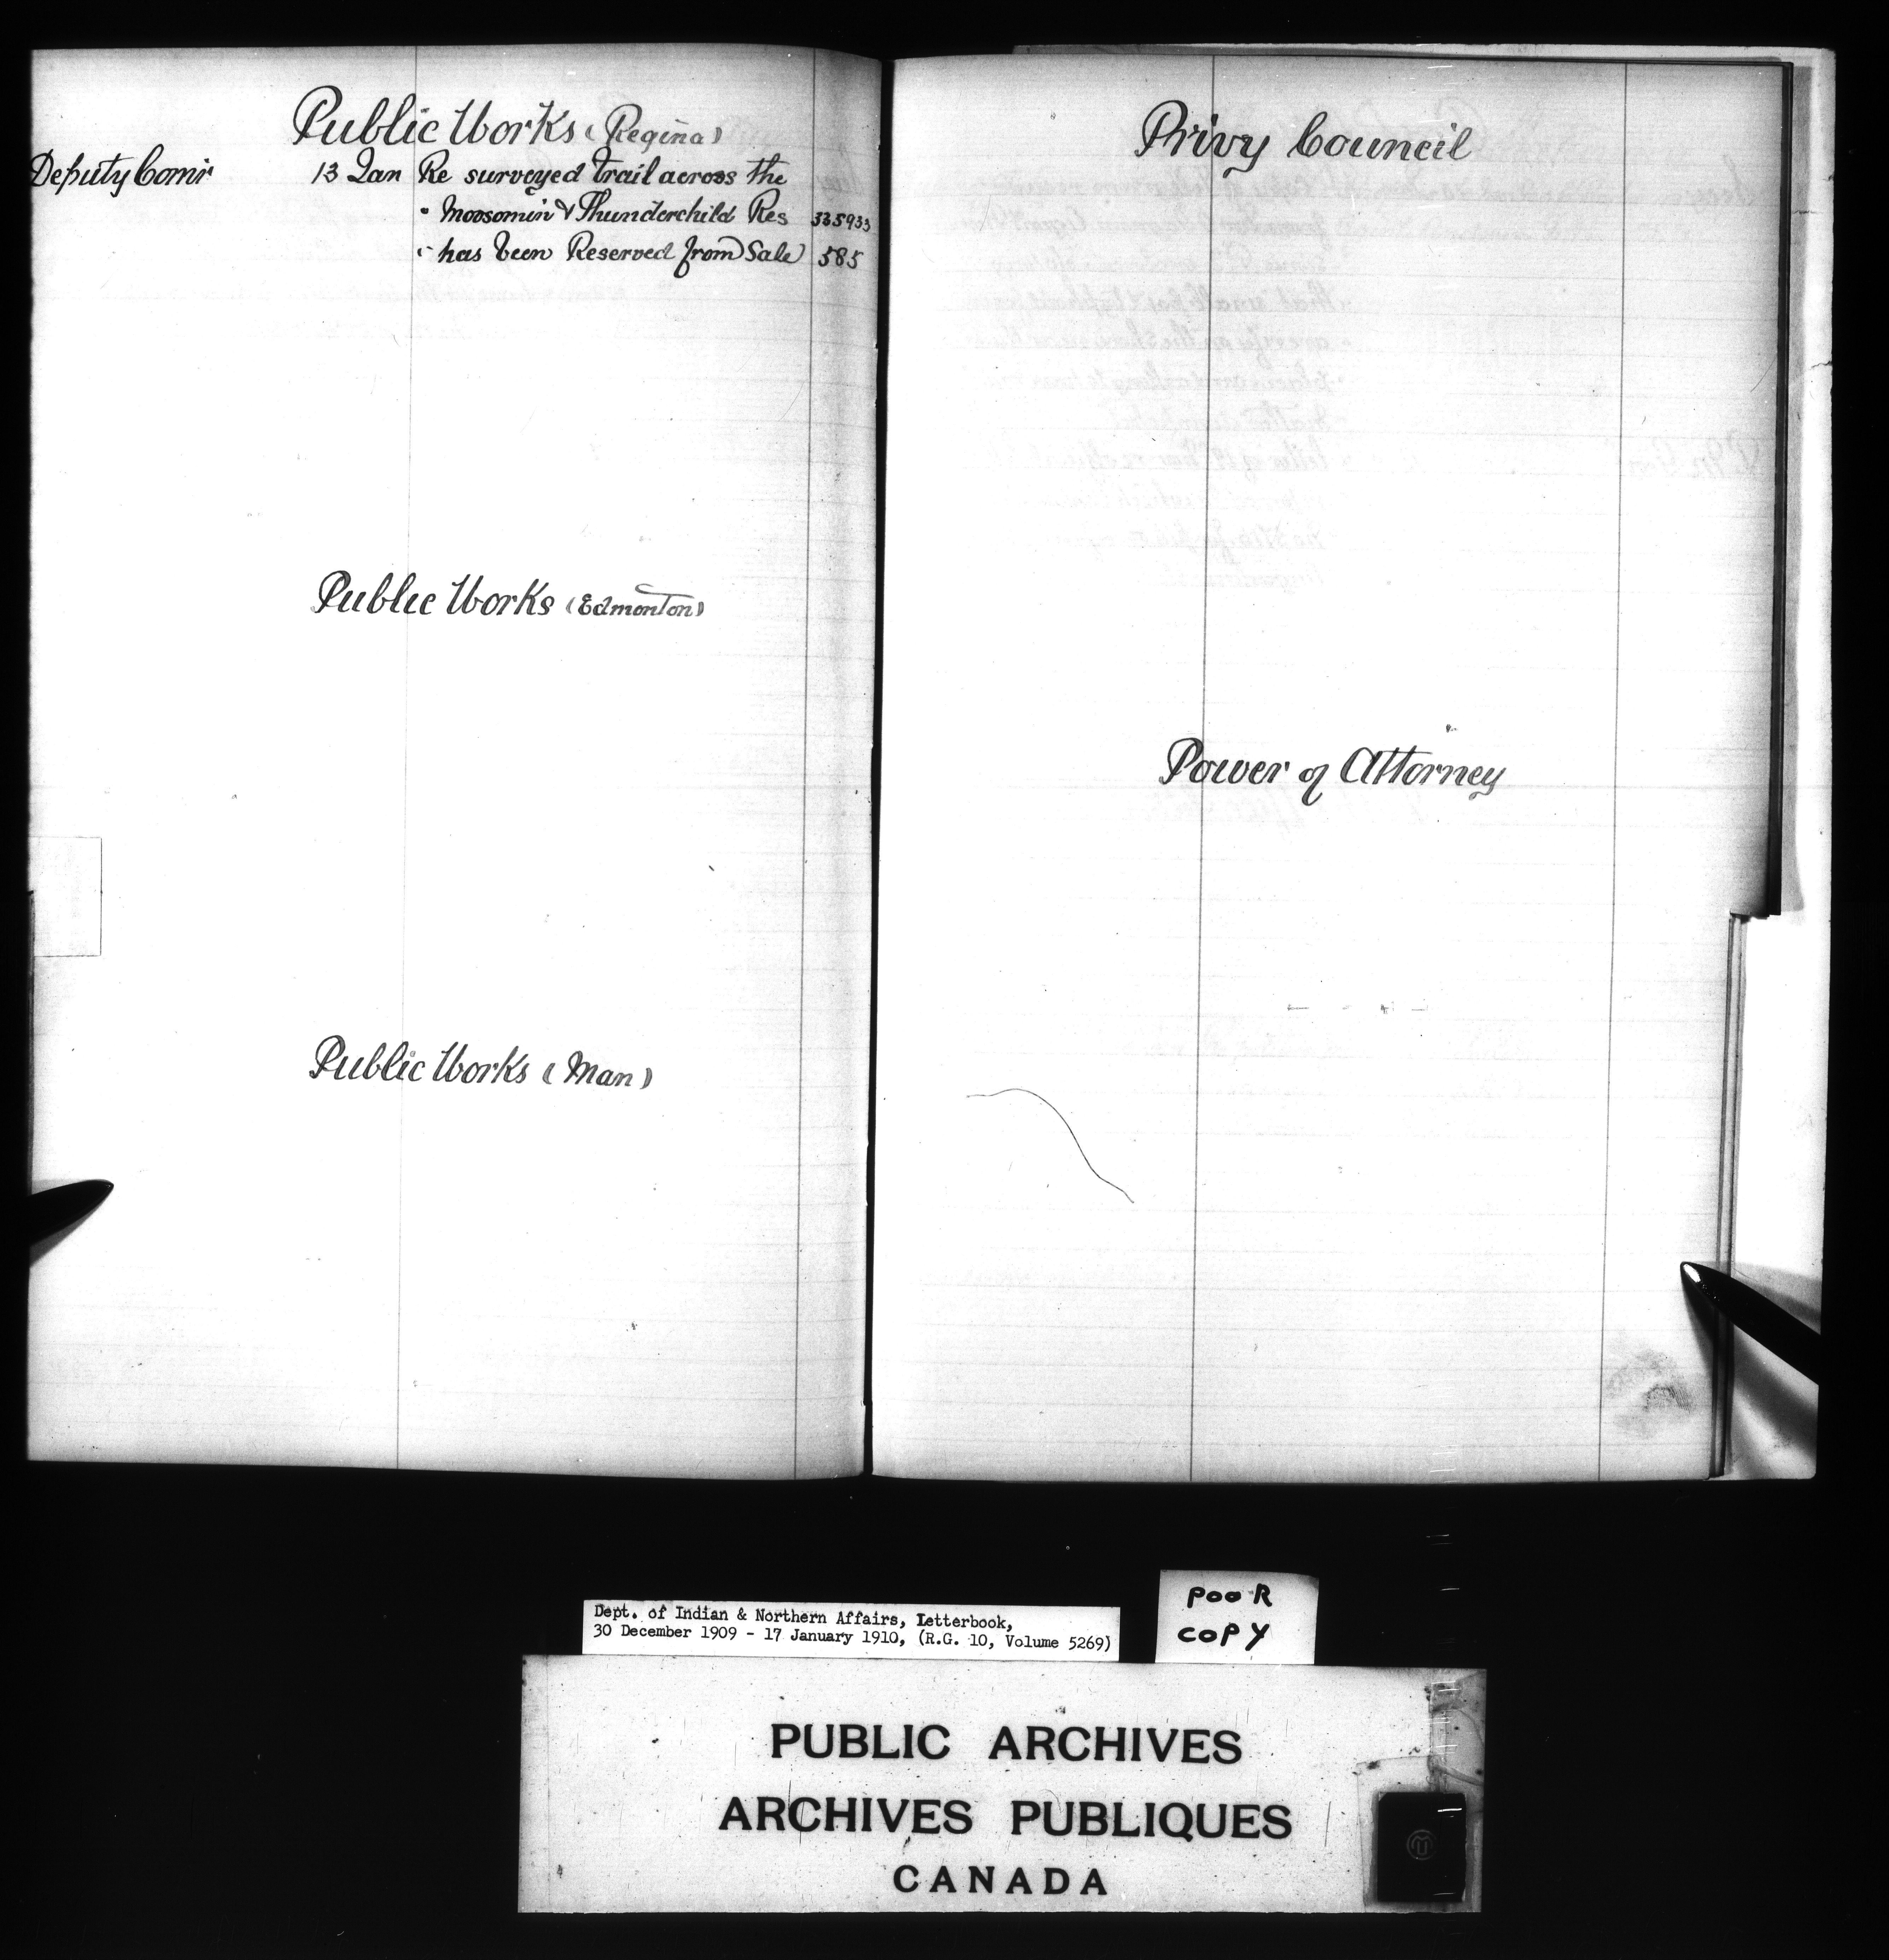 Public Works (Regina)
Deputy Comr 13 Jan Re surveyed trail across the
" Moosomin & Thunderchild Res 335933
" has been Reserved from Sale 585
Public Works (Edmonton)
Public Works (Man)
Privy Council
Power of Attorney
Dept. of Indian & Northern Affairs, Letterbook,
30 December 1909 - 17 January 1910, (R.G. 10, Volume 5269)
POOR
COPY
PUBLIC ARCHIVES
ARCHIVES PUBLIQUES
CANADA